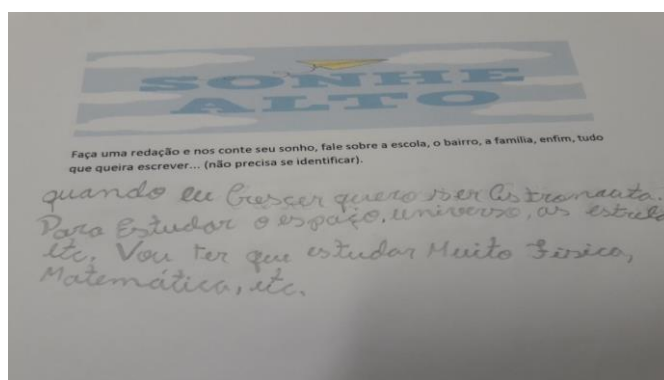 SONHE
ALTO
Faça uma redação e nos conte seu sonho, fale sobre a escola, o bairro, a família, enfim, tudo
que queira escrever... (não precisa se identificar).
quando eu Crescer quero ser Astronauta.
Para Estudar o espaço, universo, as estrela
etc. Vou Ter que estudar Muito Física,
Matemática, etc.